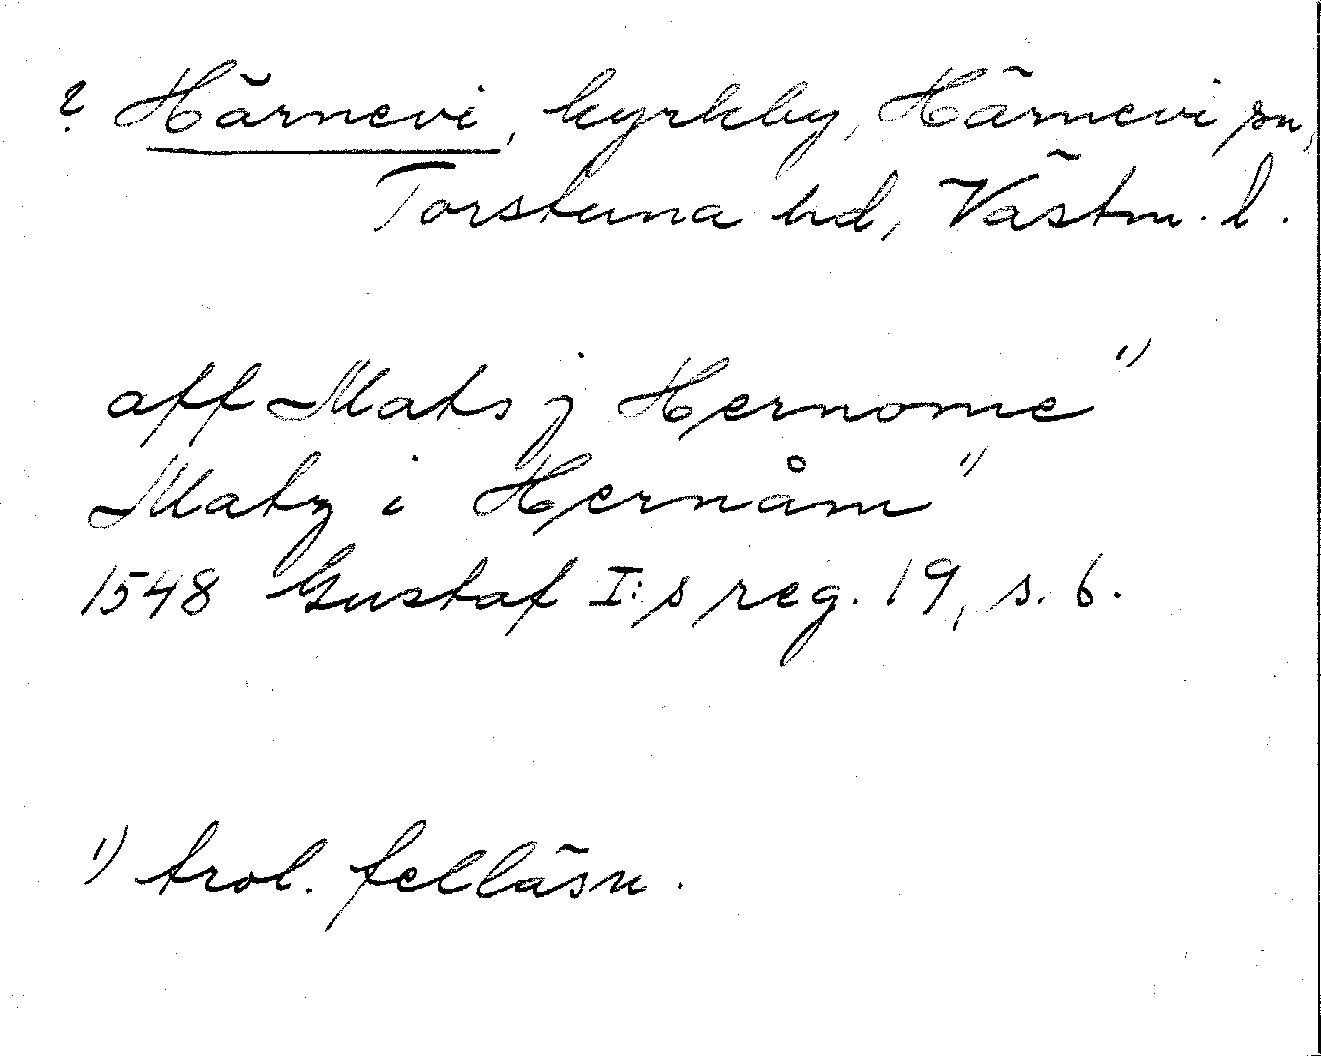 ? Härnevi, kyrkby, Härnevi sn,
Torstuna hd, Västm. l.
aff Mats j Hernome 1)
Matz i Hernåm 1)
1548 Gustaf I:s reg. 19, s. 6.
1) trol. felläsn.